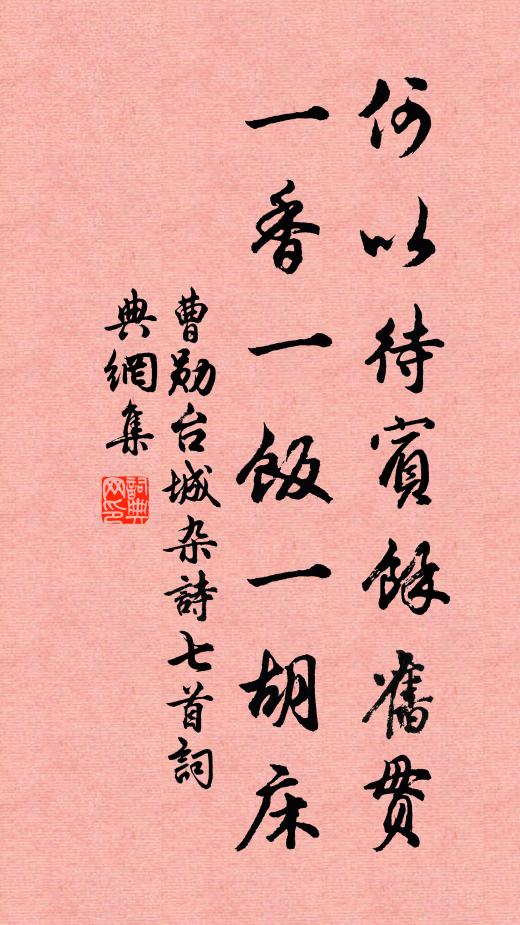 何以待賓餘舊貫
一香一飯一胡床
曹勛台城杂詩七首詞
典網集
詞典網印